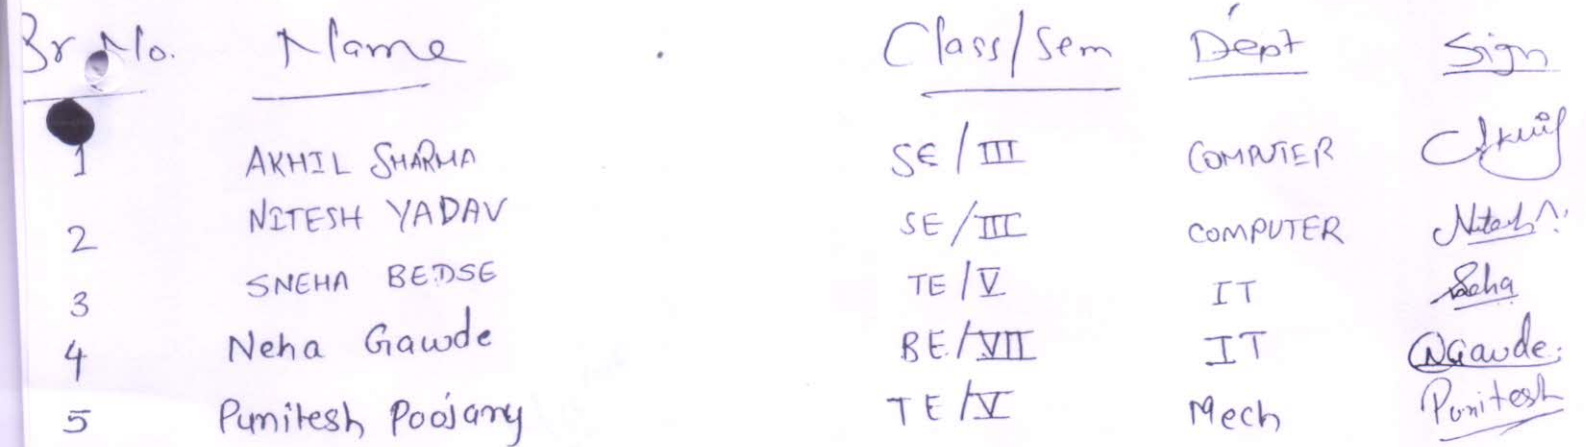 Sr No. Name Class/Sem Dept Sign
1 AKHIL SHARMA SE/III COMPUTER
2 NITESH YADAV SE/III COMPUTER Nitesh
3 SNEHA BEDSE TE/V IT
4 Neha Gawde BE/VII IT NGawde
5 Punitesh Poojary TE/V Mech Punitesh